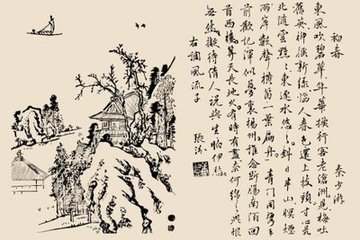 初春
秦少游
東風吹碧草年華換行客老滄洲見梅吐
舊英柳搖新綠惱人春色還上枝頭寸心亂
北隨雲黯黯東逐水悠悠斜日半山暝煙
兩岸數聲橫笛一葉扁舟青門同攜手
前歡記渾似夢裏揚州誰念斷腸南陌回
首西樓算天長地久有時有盡奈何綿綿此恨
休擬待倩人說與生怕伊愁
右調風流子